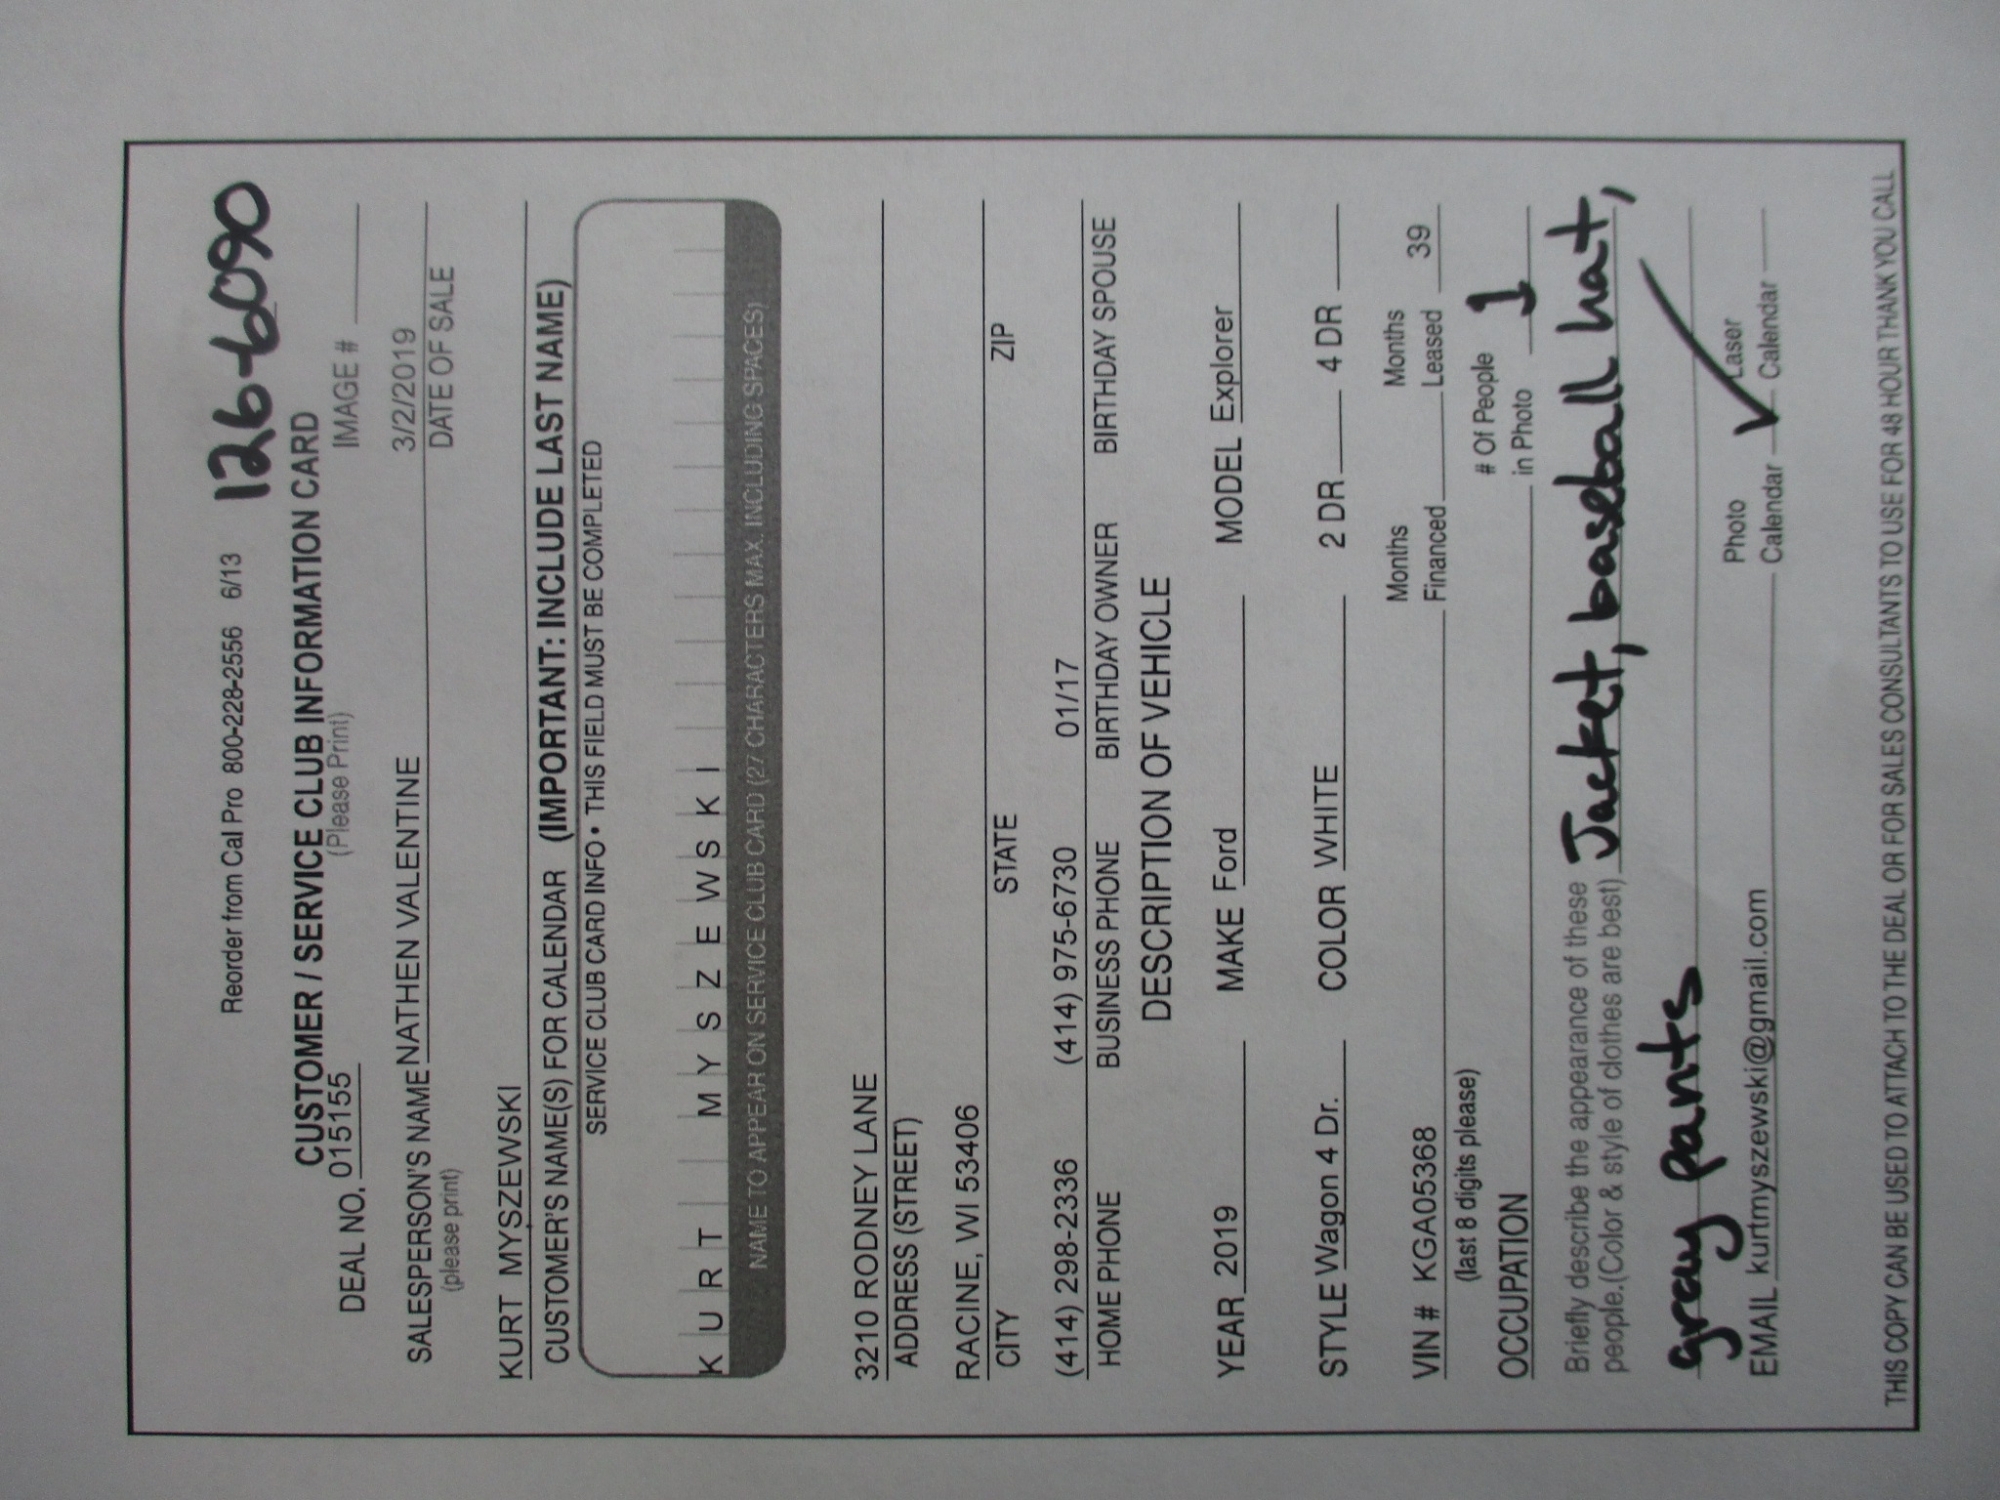 Reorder from Cal Pro 800-228-2556 6/13 126-6090
CUSTOMER / SERVICE CLUB INFORMATION CARD
(Please Print)
DEAL NO. 015155 IMAGE #
SALESPERSON'S NAME NATHEN VALENTINE 3/2/2019
(please print) DATE OF SALE
KURT MYSZEWSKI
CUSTOMER'S NAME(S) FOR CALENDAR (IMPORTANT: INCLUDE LAST NAME)
SERVICE CLUB CARD INFO • THIS FIELD MUST BE COMPLETED
K U R T M Y S Z E W S K I
NAME TO APPEAR ON SERVICE CLUB CARD (27 CHARACTERS MAX. INCLUDING SPACES)
3210 RODNEY LANE
ADDRESS (STREET)
RACINE, WI 53406
CITY STATE ZIP
(414) 298-2336 (414) 975-6730 01/17
HOME PHONE BUSINESS PHONE BIRTHDAY OWNER BIRTHDAY SPOUSE
DESCRIPTION OF VEHICLE
YEAR 2019 MAKE Ford MODEL Explorer
STYLE Wagon 4 Dr. COLOR WHITE 2 DR 4 DR
Months Months
VIN # KGA05368 Financed Leased 39
(last 8 digits please)
# Of People
OCCUPATION in Photo 1
Briefly describe the appearance of these
people.(Color & style of clothes are best) Jacket, baseball hat,
gray pants
Photo Laser
EMAIL kurtmyszewski@gmail.com Calendar ✓ Calendar
THIS COPY CAN BE USED TO ATTACH TO THE DEAL OR FOR SALES CONSULTANTS TO USE FOR 48 HOUR THANK YOU CALL